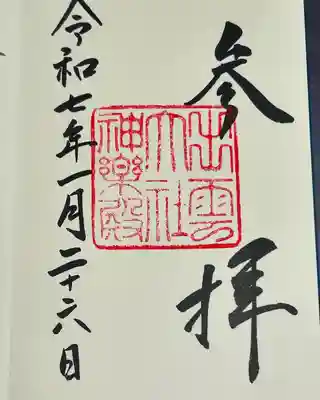 参拝
出雲
大社
神楽殿
令和七年一月二十六日